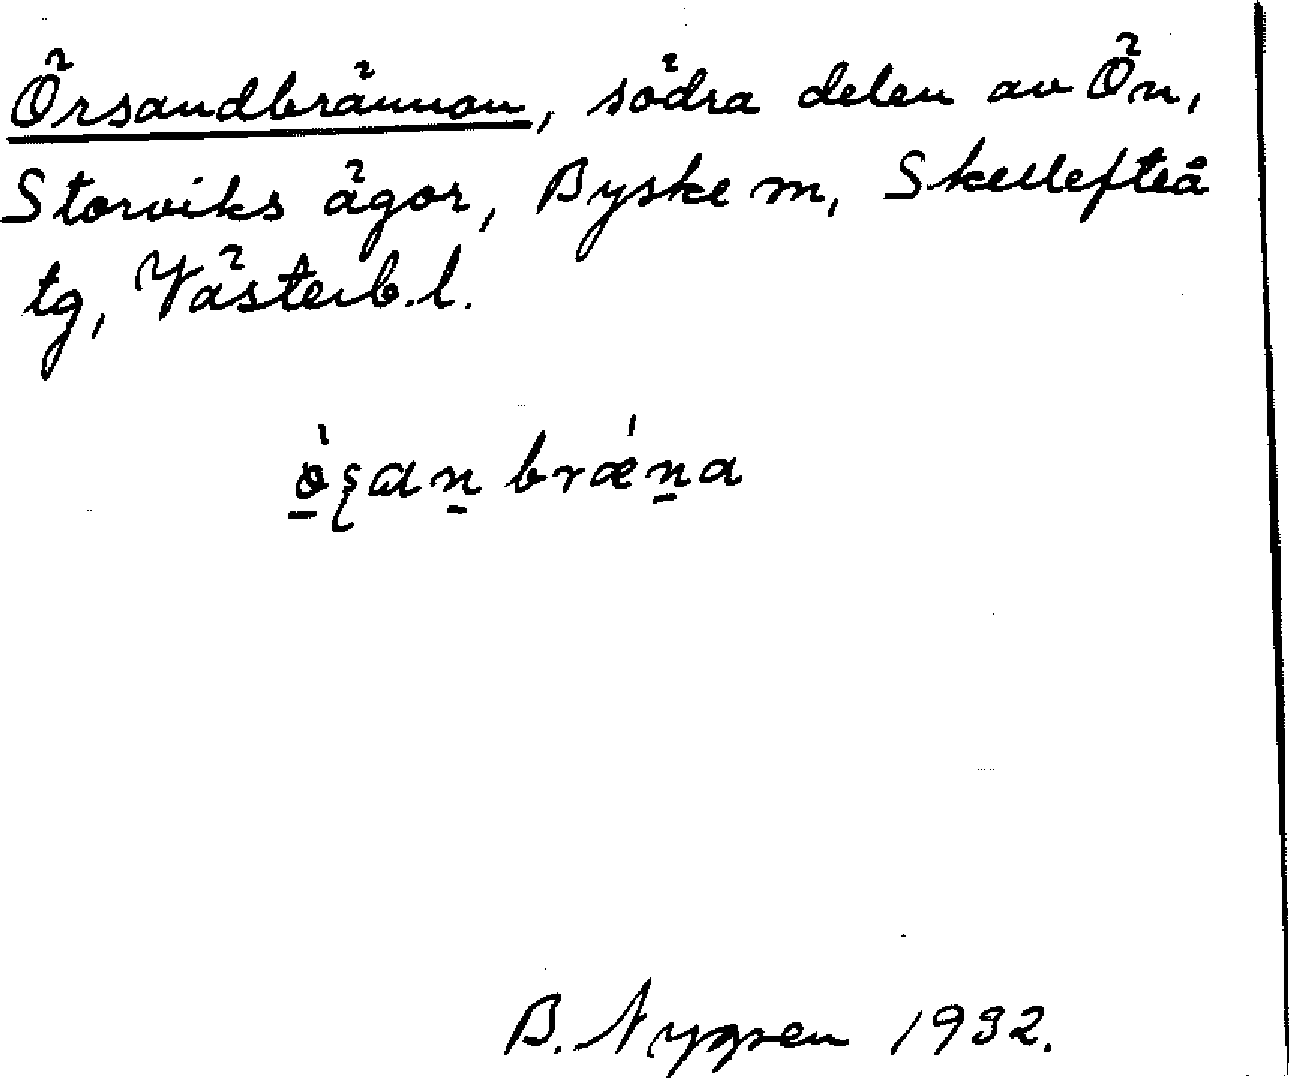 Örsandbrännan, södra delen av Ön,
Storviks ägor, Byske m, Skellefteå
tg, Västerb. l.
ò̱ʂɑṉ brǽṉa
B. Nygren 1932.